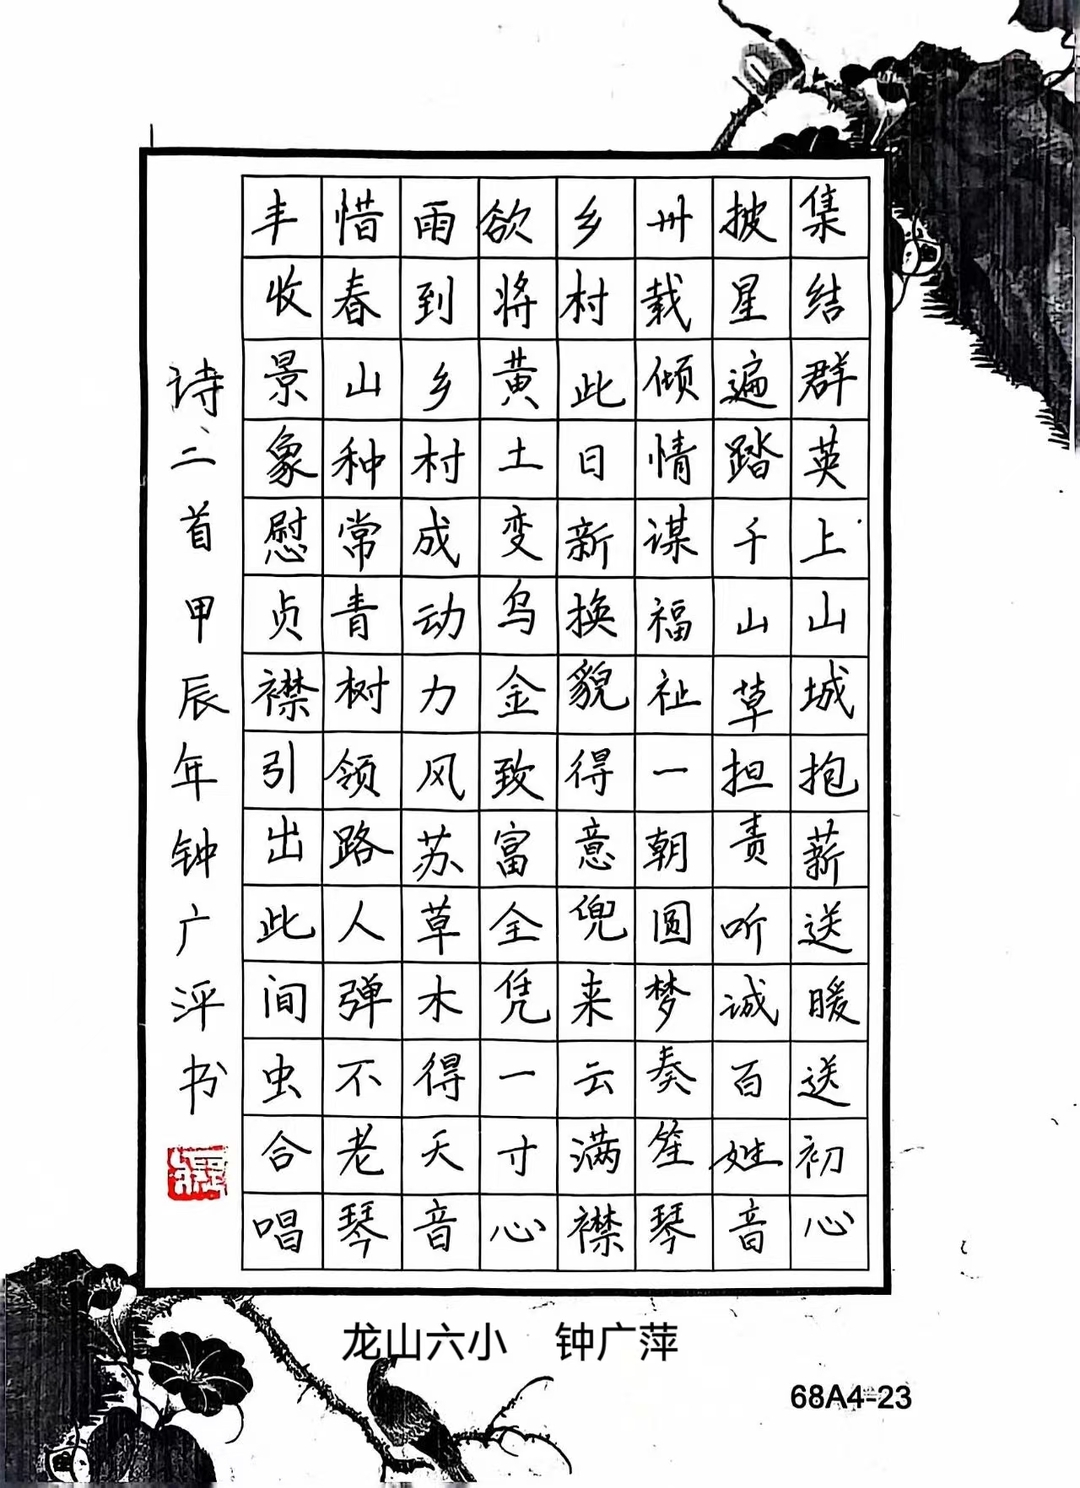 集结群英上山城抱薪送暖送初心
披星遍踏千山草担责听诚百姓音
卅栽倾情谋福祉一朝圆梦奏笙琴
乡村此日新换貌得意兜来云满襟
欲将黄土变乌金致富全凭一寸心
雨到乡村成动力风苏草木得天音
惜春山种常青树领路人弹不老琴
丰收景象慰贞襟引出此间虫合唱
诗二首甲辰年钟广泙书
龙山六小 钟广萍
68A4-23